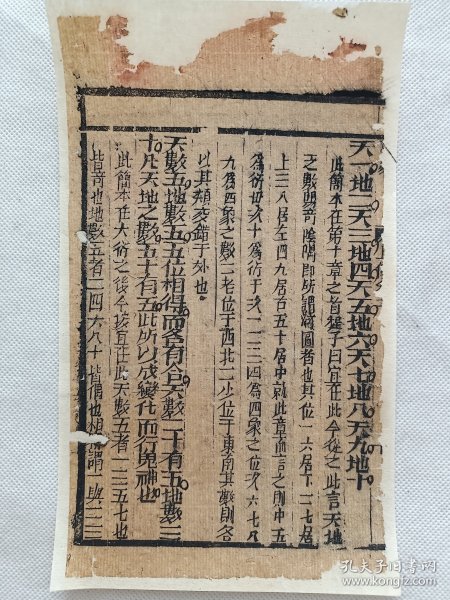 天一地二天三地四天五地六天七地八天九地十
此簡本在第十章之首程子曰宜在此今從之此言天地
之數陽奇陰偶即所謂河圖者也其位一六居下二七居
上三八居左四九居右五十居中就此章而言之則中五
為衍母次十為衍子次一二三四為四象之位次六七八
九為四象之數二老位于西北二少位于東南其數則各
以其類交錯于外也
天數五地數五五位相得而各有合天數二十有五地數三
十凡天地之數五十有五此所以成變化而行鬼神也
此簡本在大衍之後今按宜在此天數五者一三五七
皆奇也地數五者二四六八十皆偶也相得謂一與二三
孔夫子旧书网
kongfz.com